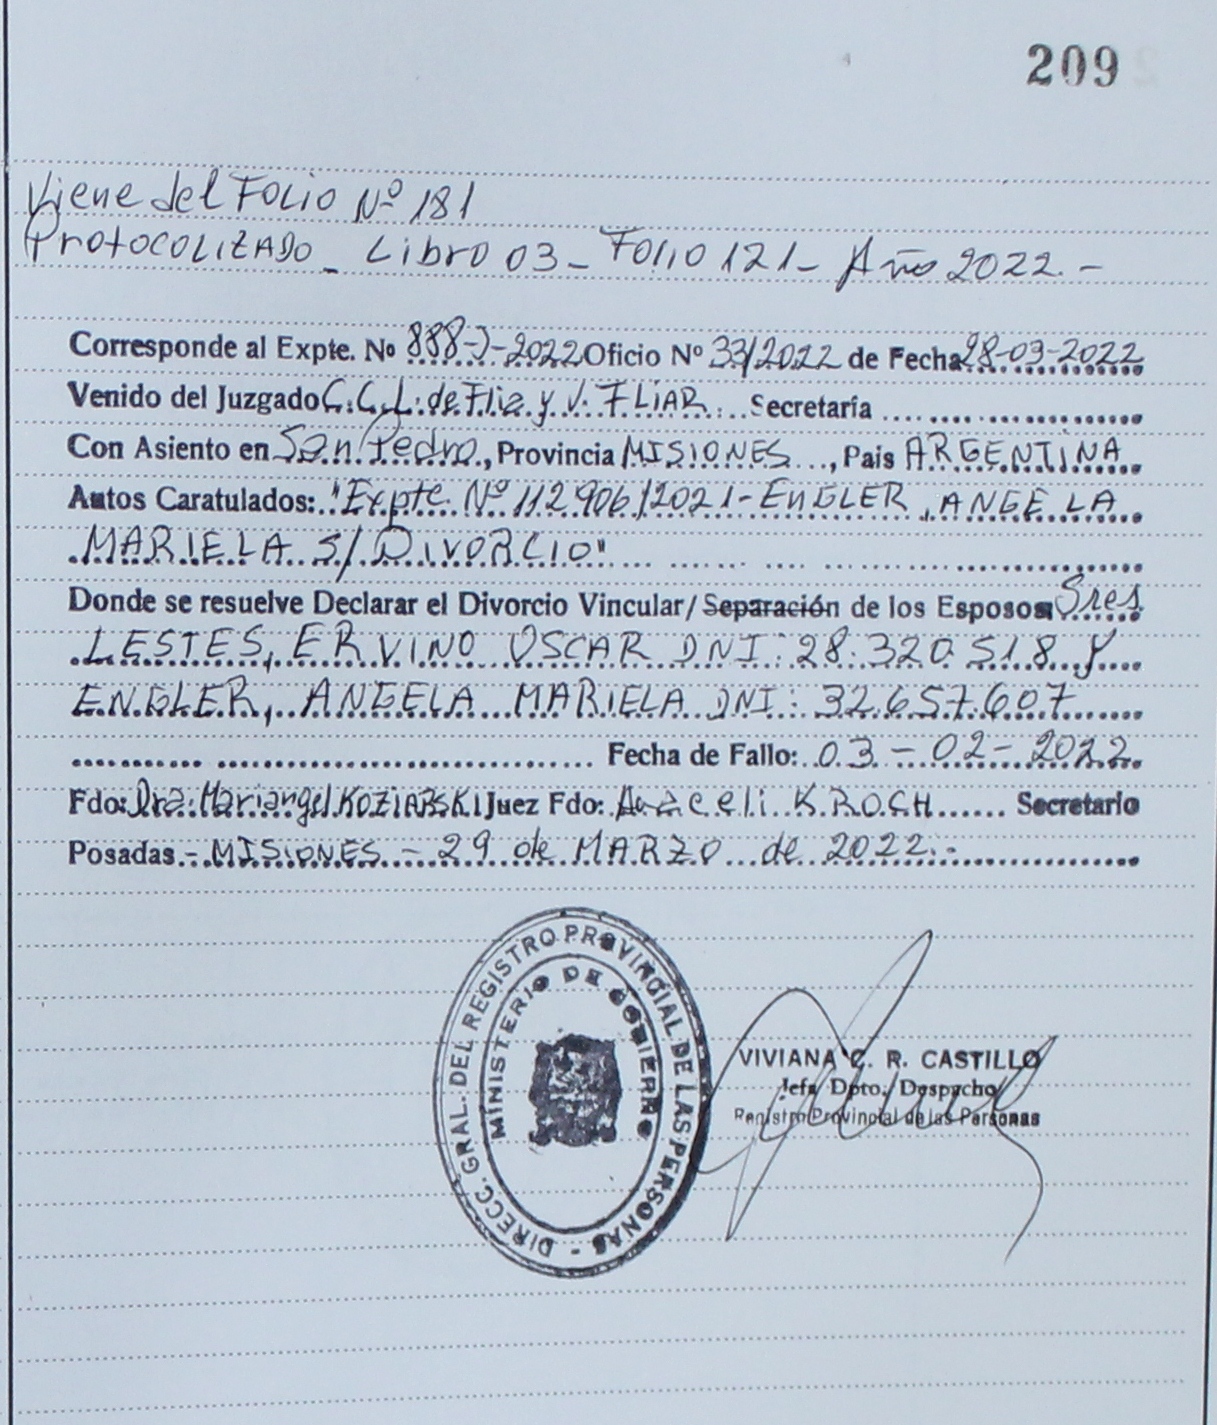 209
Viene del Folio Nº 181
Protocolizado - Libro 03 - Folio 121 - Año 2022.-
Corresponde al Expte. Nº 888-J-2022 Oficio Nº 33/2022 de Fecha 28-03-2022
Venido del Juzgado C.C.L. de Flia y V. FLIAR. Secretaría
Con Asiento en San Pedro, Provincia MISIONES, Pais ARGENTINA
Autos Caratulados: "Expte Nº 112.906/2021 - ENGLER, ANGELA
MARIELA S/ DIVORCIO"
Donde se resuelve Declarar el Divorcio Vincular/Separación de los Esposos Sres
LESTES, ERVINO OSCAR DNI: 28.320.518 y
ENGLER, ANGELA MARIELA DNI: 32.657.607
Fecha de Fallo: 03-02-2022
Fdo: Dra. Mariangel KOZIARSKI Juez Fdo: Araceli K. ROCH Secretario
Posadas - MISIONES - 29 de MARZO de 2022.-
DIRECC. GRAL. DEL REGISTRO PROVINCIAL DE LAS PERSONAS -
MINISTERIO DE GOBIERNO
VIVIANA C. R. CASTILLO
Jefa Dpto. Despacho
Registro Provincial de las Personas